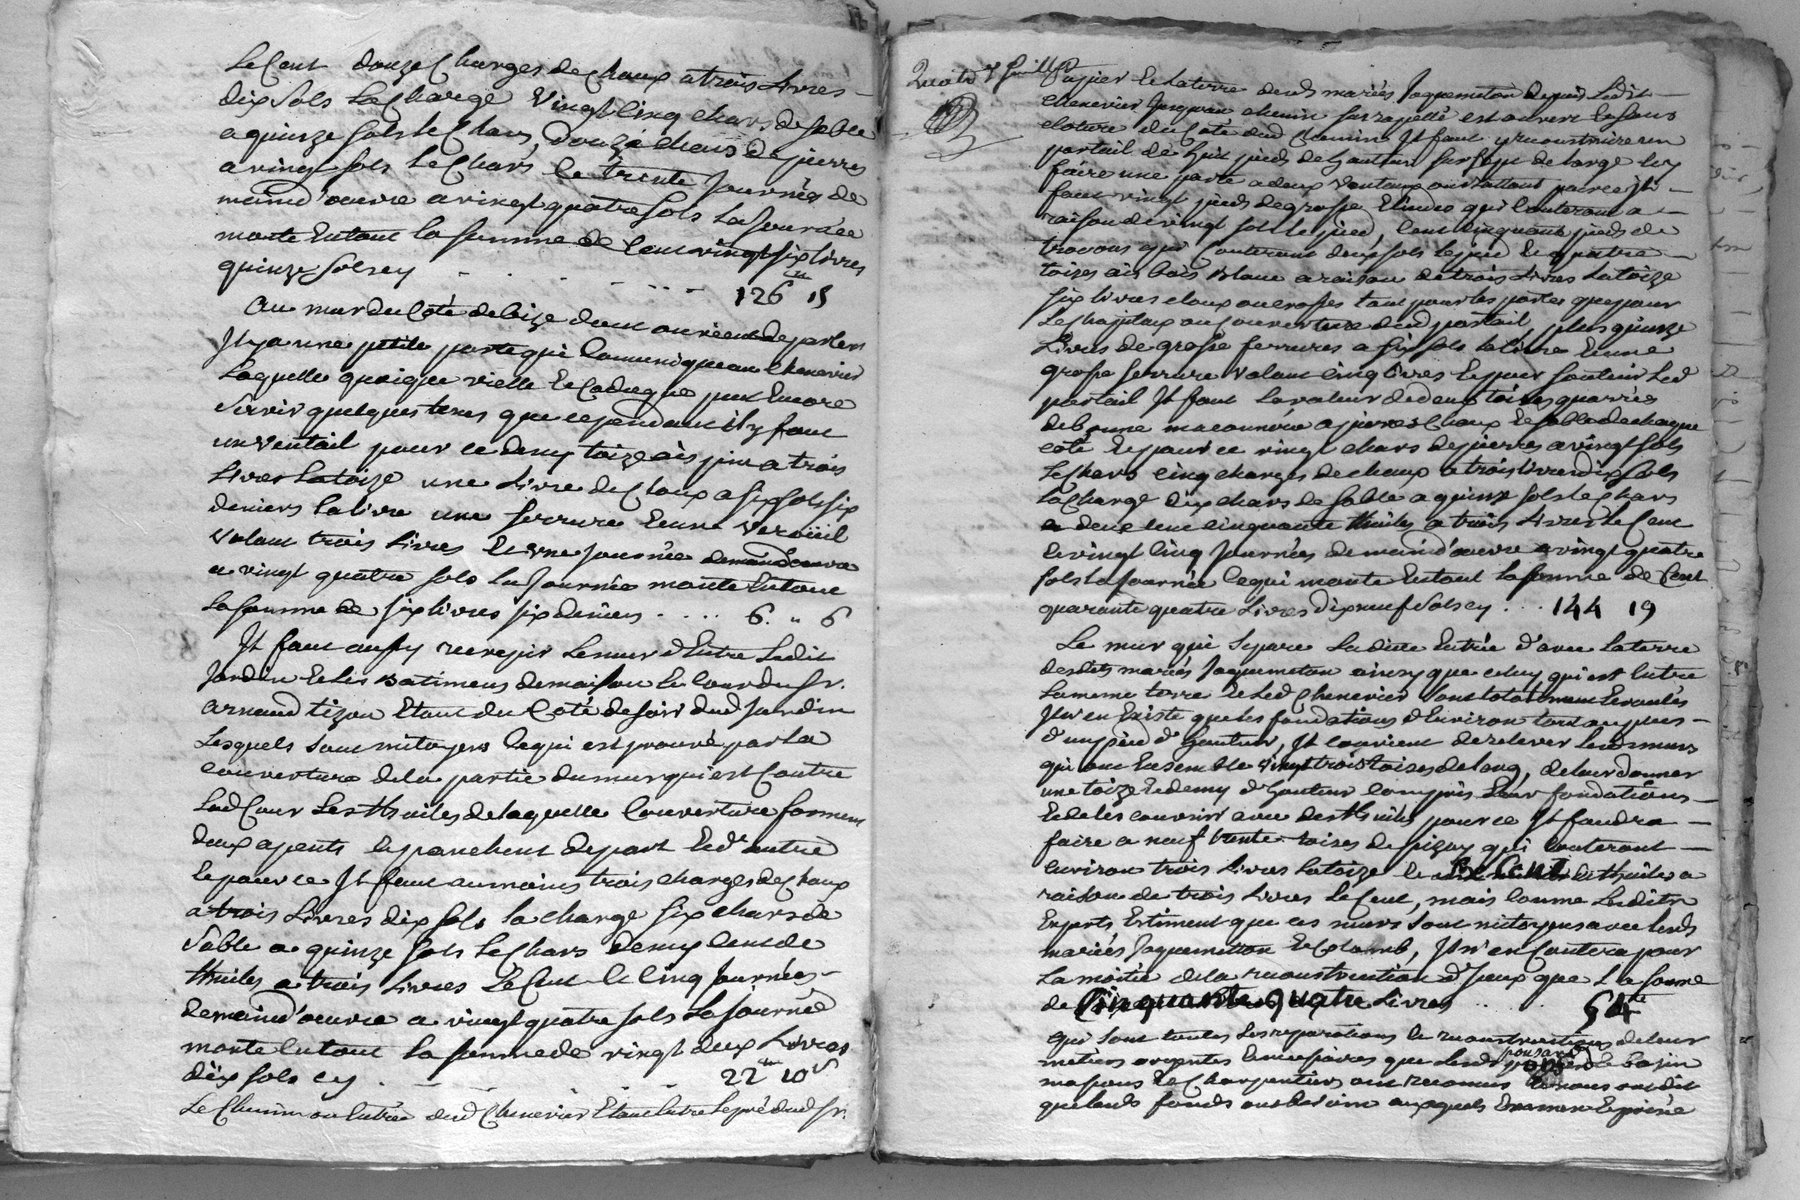 Le Cent douze Charges de Chaux a trois Livres
dix Sols La Charge Vingt Cinq chars de Sable
a quinze sols le Chars, douze chars de pierres
a vingt sols Le Chars Et trente Journées de
maind'oeuvre a vingt quatre sols La Journée
monte En tout la somme de Cent vingt six Livres
quinze Sols cy 126 15
Au mur du Côté de bize dont on vient de parler
Il y a une petite porte qui Communique au Chenevier
Laquelle quoique vielle Et Caduque peut Encore
Servir quelques tems que cependant il y faut
un ventail pour ce demy toize ais pin a trois
Livres La toize une Livre de Cloux a six sols six
deniers La livre une serrure Et une Veroüil
valant trois Livres Et une Journée demaind'oeuvre
a vingt quatre sols La Journée monte En tout
La somme de six Livres six deniers 6. " 6
Il faut aussy recrepir Le mur d'Entre Ledit
Jardin Et les Batimens de maison Et Cour du Sr.
Arnaud tizon Etant du Coté de soir dud Jardin
Lesquels sont mitoyens Ce qui est prouvé par La
couverture de la partie du mur qui est Contre
Lad Cour Les thuiles de laquelle Couverture forment
deux apents Et panchent de part Et d'autre
Et pour ce Il faut au moins trois charges de Chaux
a trois Livres dix sols la charge six chars de
Sable a quinze sols Le Chars demy Cent de
thuiles a trois Livres Le Cent Et Cinq Journées
demaind'oeuvre a vingt quatre sols La Journée
monte En tout La somme de vingt deux Livres
dix sols cy 22 10
Le Chemin ou Entrée dud Chenevier Etant Entre Le pré dud Sr.
papier Et La terre desd mariés Jaquemeton depuis Ledit
Chenevier Jusqu'au chemin sus rapellé est ouvert Et sans
cloture du Coté dud Chemin Il faut y reconstruire un
portail de huit pieds de hauteur sur sept de Large Et y
faire une porte a deux Ventaux pour ce Il
faut vingt pieds de grosse qui Couteront a
raison de vingt sols Le pied, Cent Cinquante pieds de
travons qui Couteront deux sols Le pied Et quatre
toizes ais bois Blanc a raison de trois Livres La toize
six Livres cloux tant pour les portes que pour
Le Chapitaux ou Couverture dud portail, plus quinze
Livres de grosse ferrures a six sols la livre Et une
grosse serrure valant Cinq Livres Et pour soutenir Led
portail Il faut La valeur de deux toizes quarrées
de bonne maconnerie a pierres Chaux Et sable de chaque
coté Et pour ce vingt chars de pierres a vingt sols
Le chars cinq charges de chaux a trois livres dix sols
La Charge dix chars de sable a quinze sols Le chars
deux cent cinquante thuiles a trois Livres Le Cent
Et vingt Cinq Journées de maind'oeuvre a vingt quatre
sols La Journée Ce qui monte En tout La somme de Cent
quarante quatre Livres dix neuf Sols cy 144 19
Le mur qui Separe La dite Entrée d'avec La terre
desdits mariés Jaquemeton ainsy que celuy qui est Entre
La meme terre Et Led Chenevier sont totalement Ecroulés
Il n'en Existe que les fondations d'Environ tout au plus
d'un pied d'hauteur, Il Convient de relever Lesd murs
qui ont Ensemble vingt trois toizes de long, de leur donner
une toize Et demy d'hauteur Compris Leur fondations
Et de les couvrir avec des thuiles pour ce Il faudra
faire a neuf trente toizes de pizay qui Couteront
Environ trois Livres La toize Et Cent thuiles a
raison de trois Livres Le Cent, mais Comme Lesdits
Experts Estiment que ces murs sont mitoyens avec lesd
mariés Jaquemeton Et Colomb, Il n'en Coutera pour
La moitié de la reconstruction d'Iceux que La somme
de Cinquante Quatre Livres 54
qui sont toutes Les reparations Et reconstructions de leur
metiers
massons Et Charpentiers ont reconnus Et nous ont dit
que lesd fonds ont besoin auxquels Examen